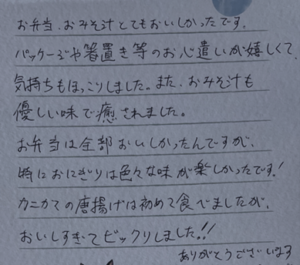 お弁当、おみそ汁とてもおいしかったです。
パッケージや箸置き等のお心遣いが嬉しくて、
気持ちもほっこりしました。また、おみそ汁も
優しい味で癒されました。
お弁当は全部おいしかったんですが、
特におにぎりは色々な味が楽しかったです!
カニカマの唐揚げは初めて食べましたが、
おいしすぎてビックリしました!!
ありがとうございます